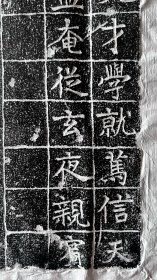 才學就篤信天
奄從玄夜親賓